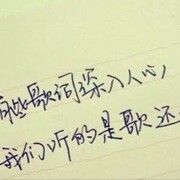 有些歌词深入人心
我们听的是歌还